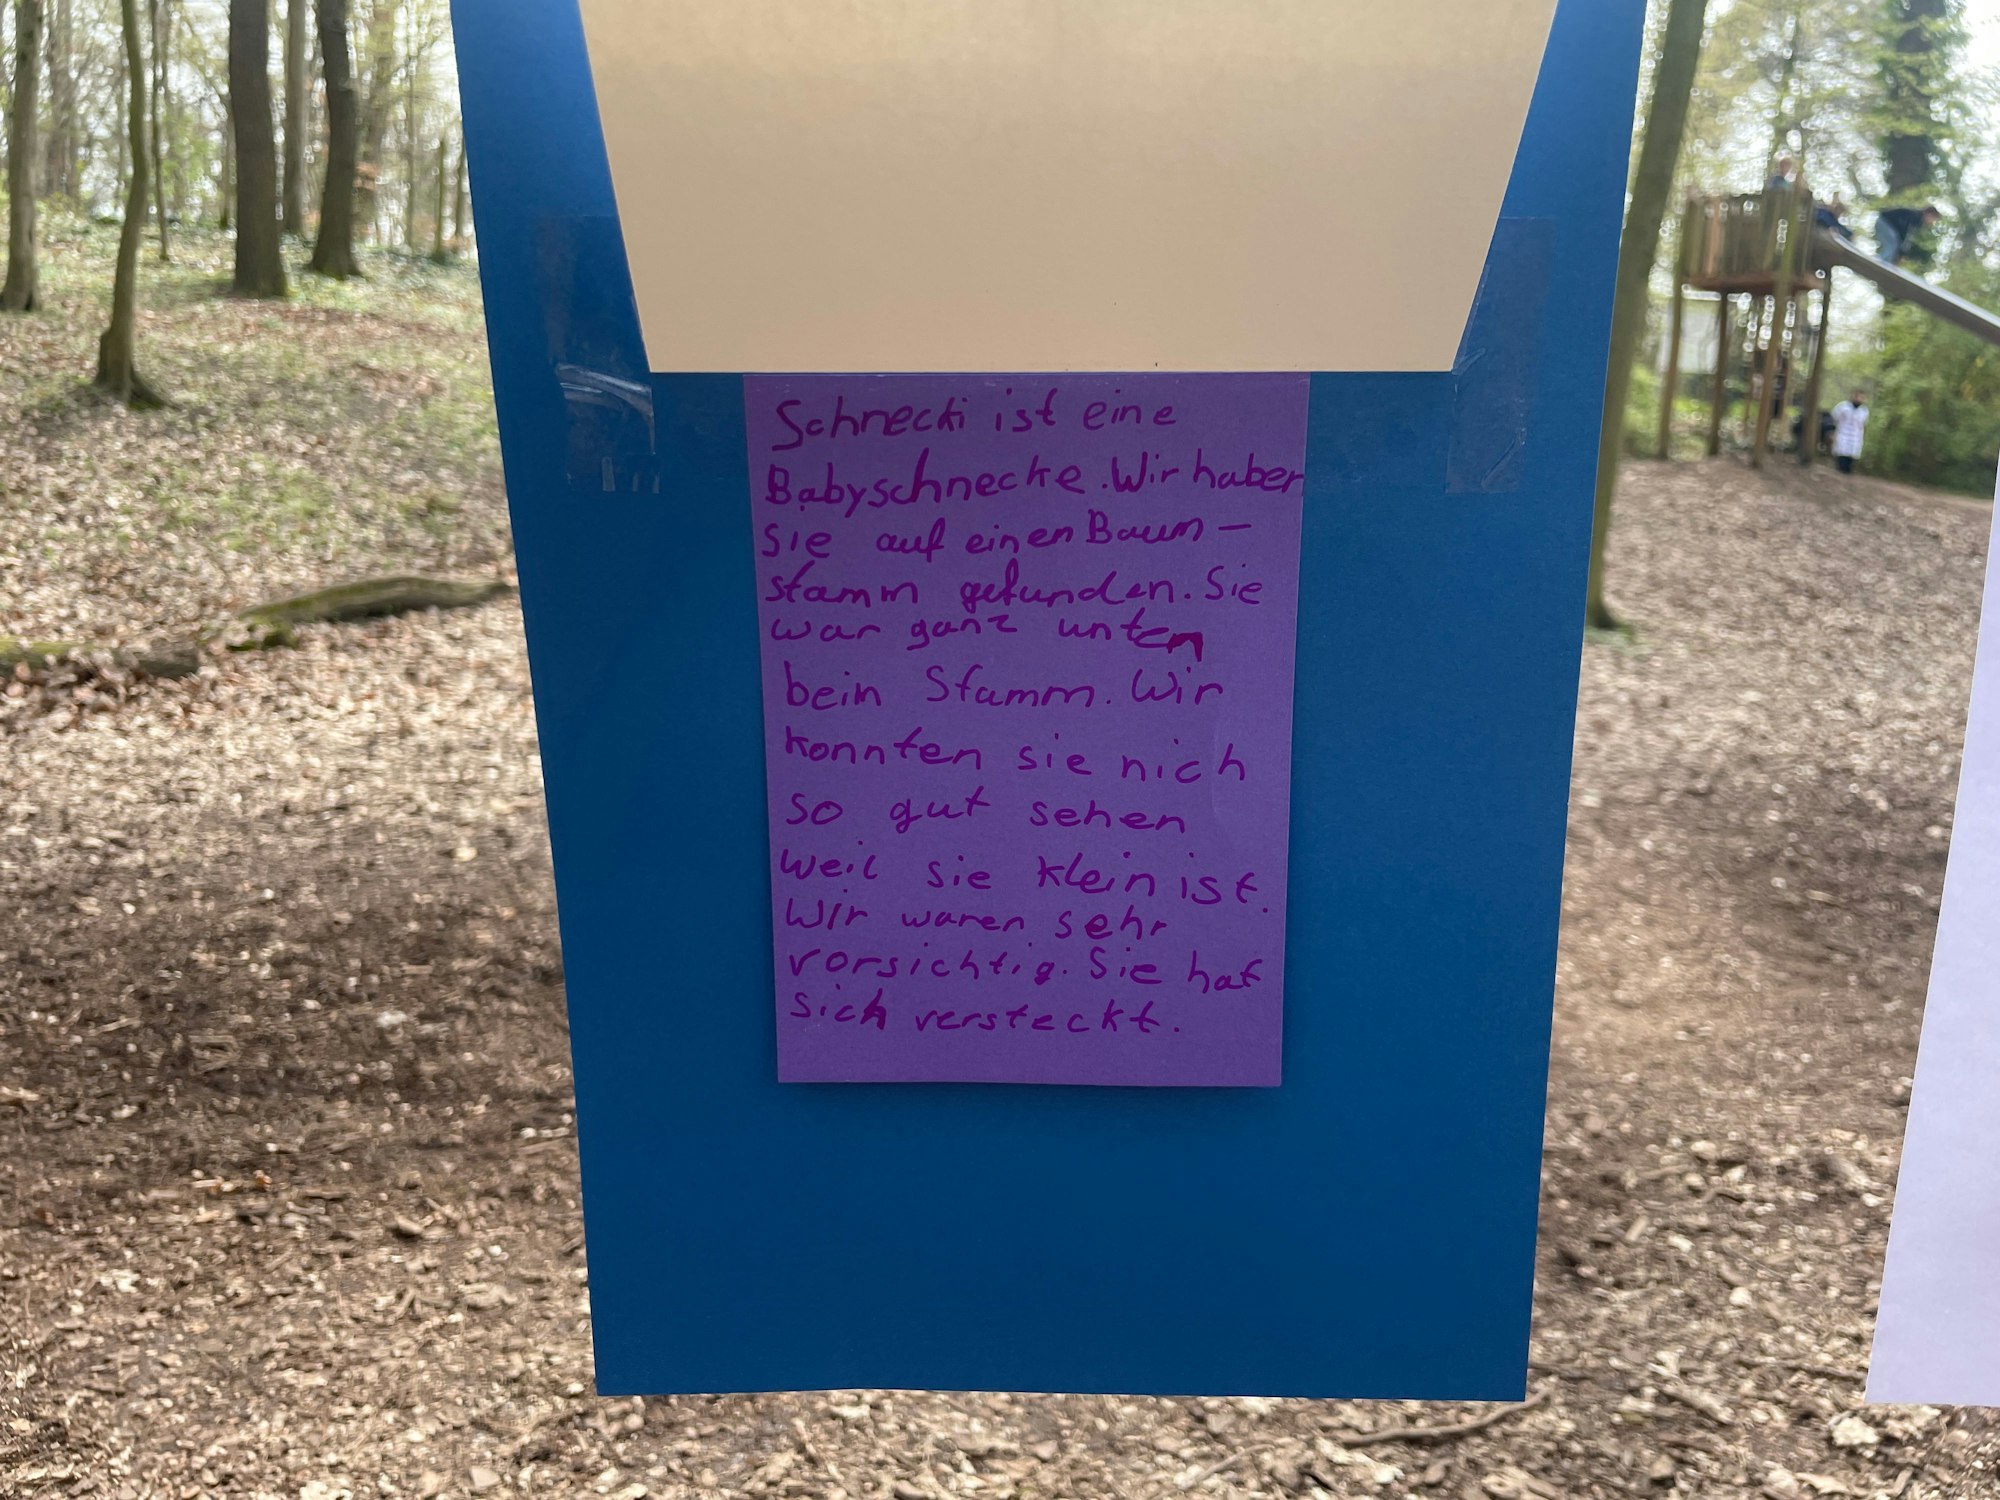 Schnecki ist eine
Babyschnecke. Wir haben
Sie auf einen Baum-
stamm gefunden. Sie
war ganz unten
beim Stamm. Wir
konnten sie nich
so gut sehen
weil sie klein ist.
Wir waren sehr
vorsichtig. Sie hat
sich versteckt.